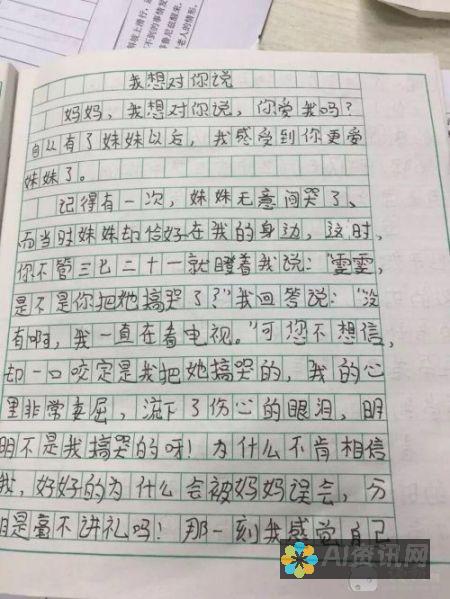 我想对你说
妈妈，我想对你说，你爱我吗？
自从有了妹妹以后，我感受到你更爱
妹妹了。
记得有一次，妹妹无意间哭了、
而当时妹妹却恰好在我的身边，这时，
你不管三七二十一就瞪着我说：“雯雯，
是不是你把她搞哭了？”我回答说：“没
有啊，我一直在看电视。”可您不想信，
却一口咬定是我把她搞哭的，我的心
里非常委屈，流下了伤心的眼泪，明
明不是我搞哭的呀！为什么不肯相信
我，好好的为什么会被妈妈误会，分
明是毫不讲礼吗！那一刻我感觉自己
AI资讯网